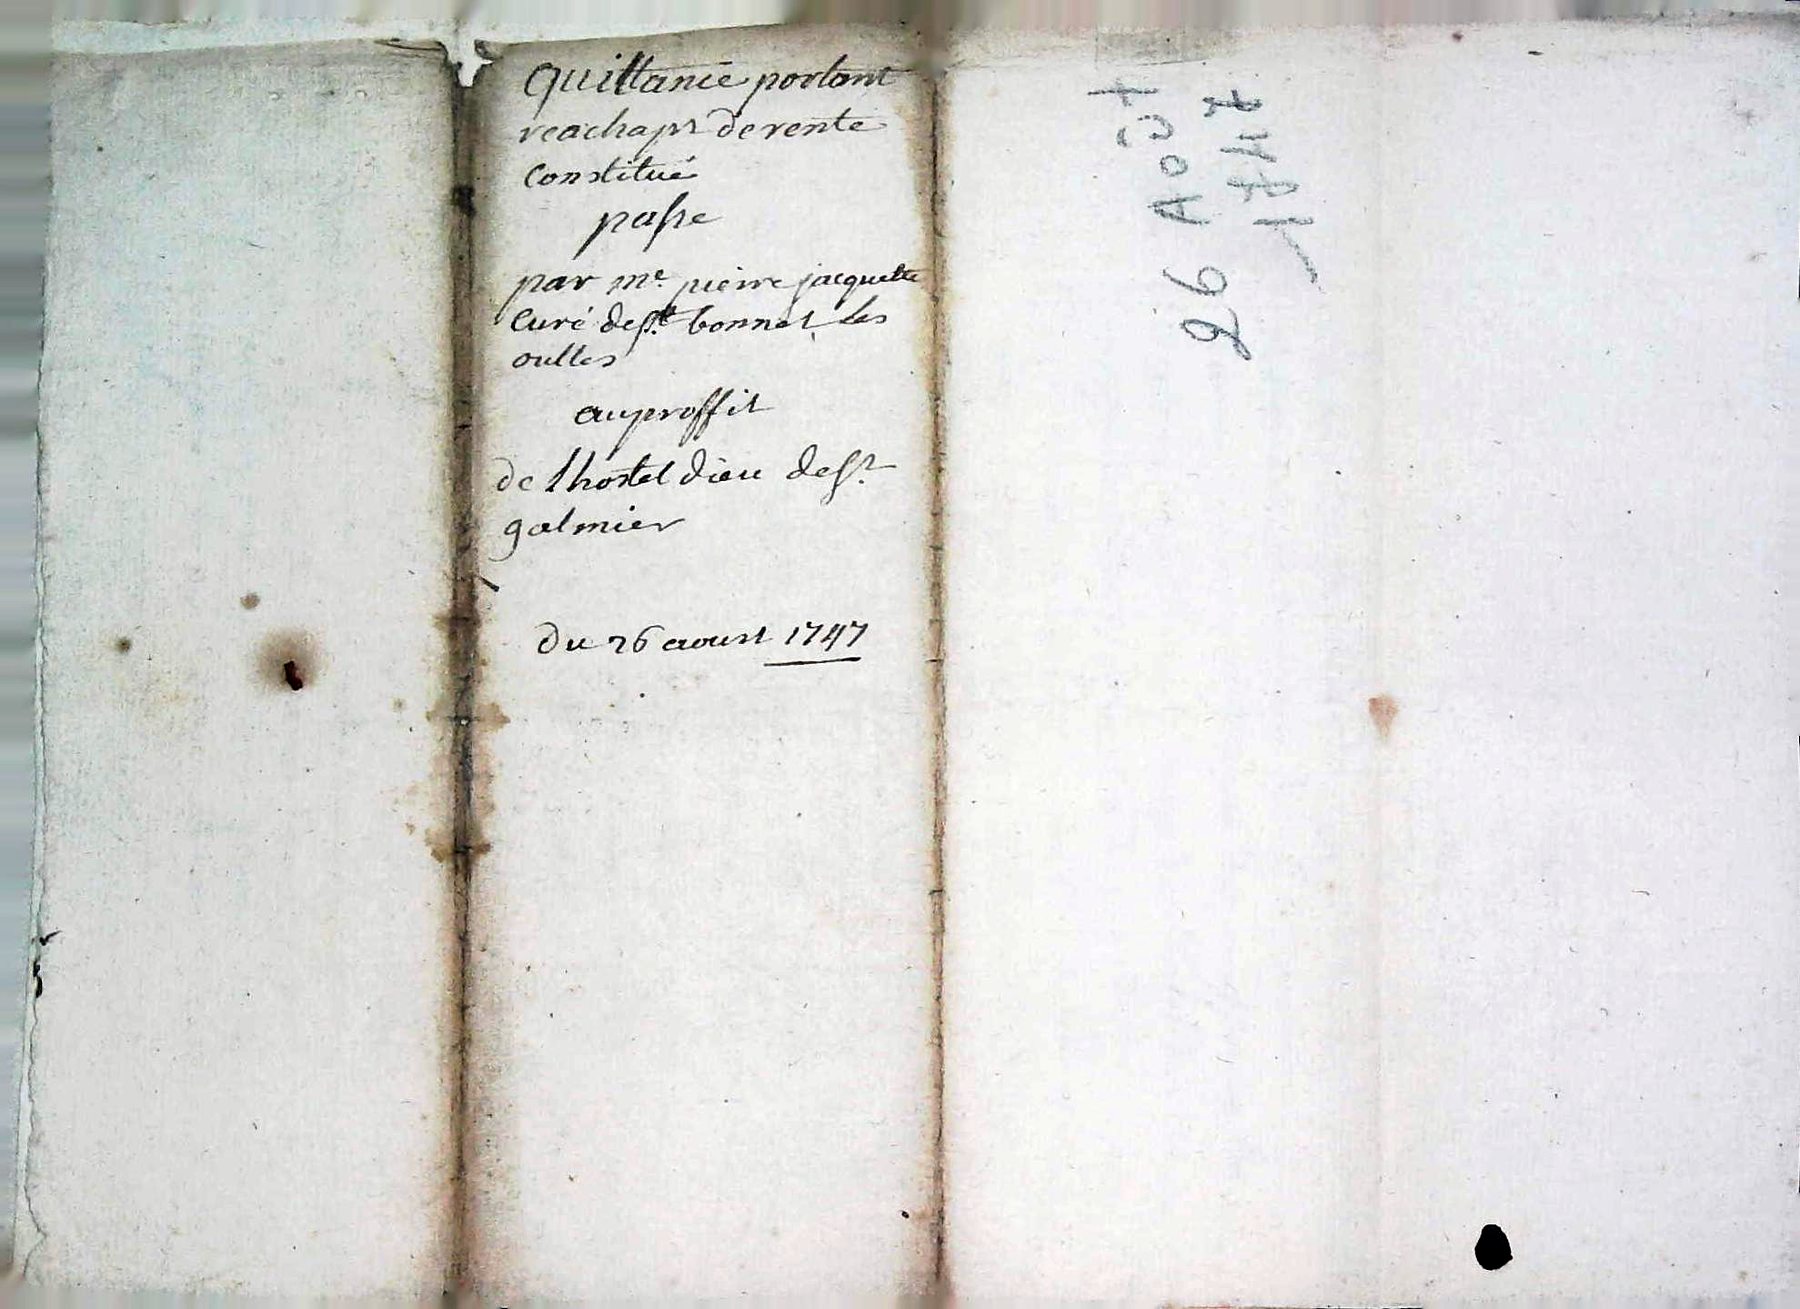 Quittance portant
reachapt de rente
constitué
passe
par me. pierre jacquette
curé de st. bonnet les
oulles
au proffit
de lhostel dieu de st.
galmier
du 26 aoust 1747
26 Août
1747